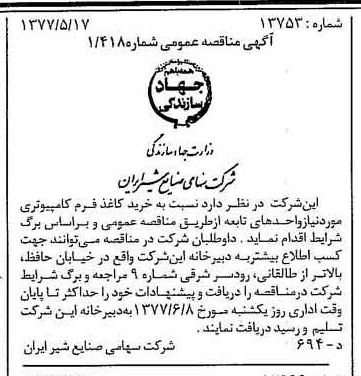 شماره : ۱۳۷۵۳ ۱۳۷۷/۵/۱۷
آگهی مناقصه عمومی شماره ۱/۴۱۸
همه با هم
جهاد
سازندگی
وزارت جهاد سازندگی
شرکت سهامی صنایع شیر ایران
این شرکت در نظر دارد نسبت به خرید کاغذ فرم کامپیوتری
موردنیاز واحدهای تابعه از طریق مناقصه عمومی و براساس برگ
شرایط اقدام نماید . داوطلبان شرکت در مناقصه می‌توانند جهت
کسب اطلاع بیشتر به دبیرخانه این شرکت واقع در خیابان حافظ،
بالاتر از طالقانی، رودسر شرقی شماره ۹ مراجعه و برگ شرایط
شرکت در مناقصه را دریافت و پیشنهادات خود را حداکثر تا پایان
وقت اداری روز یکشنبه مورخ ۱۳۷۷/۶/۸ به دبیرخانه این شرکت
تسلیم و رسید دریافت نمایند .
د – ۶۹۴ شرکت سهامی صنایع شیر ایران